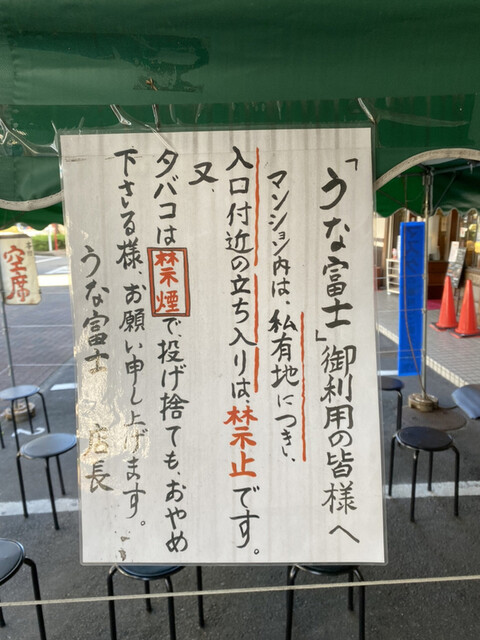 「うな富士」御利用の皆様へ
マンション内は、私有地につき、
入口付近の立ち入りは、禁止です。
又、
タバコは禁煙で、投げ捨ても、おやめ
下さる様、お願い申し上げます。
うな富士 店長
空席